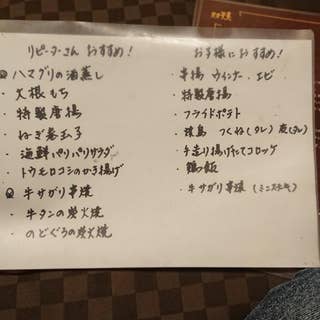 リピーターさん おすすめ!
ハマグリの酒蒸し
・大根もち
・特製唐揚
・ねぎ巻玉子
・海鮮パリパリサラダ
・トウモロコシのかき揚げ
牛サガリ串焼
・牛タンの炭火焼
・のどぐろの炭火焼
お子様におすすめ!
・串揚 ウインナー、エビ
・特製唐揚
・フライドポテト
・焼鳥 つくね(タレ) 皮(タレ)
・手造り揚げたてコロッケ
・鶏飯
・牛サガリ串焼 (ミニステーキ)